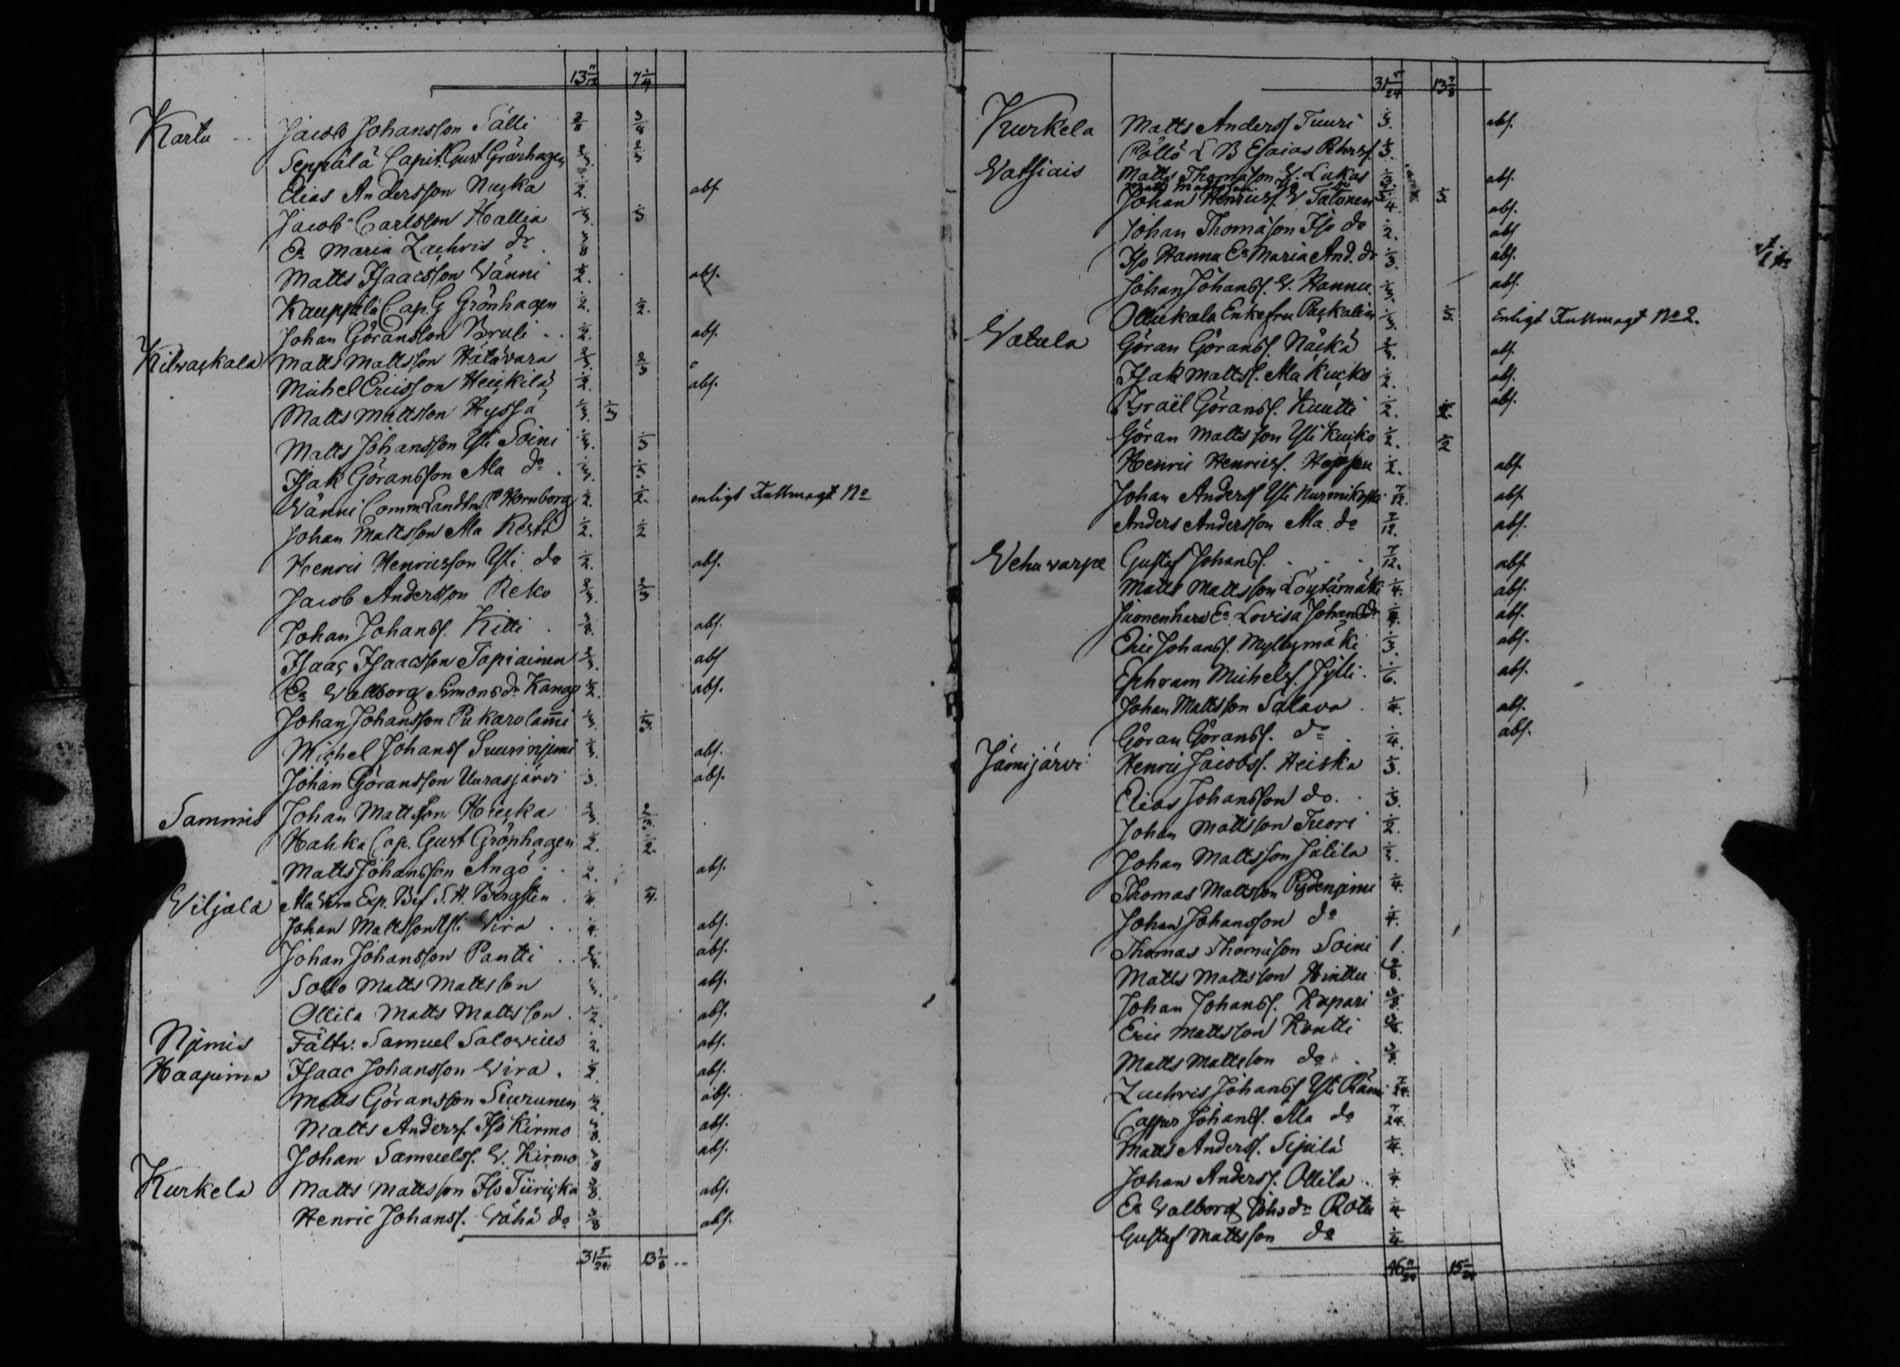 13 11/12 7 1/4
Kartu Jacob Johansson Sälli 3/8 3/8
Seppälä Capit. Gust Grönhagen 2/3 2/3
Elias Andersson Nuçka 1/2 abs.
Jacob Carlsson Hallia 1/3 1/3
Ea Maria Zachris dr 3/8
Matts Isaacsson Wänni 1/2 abs.
Kauppila Cap. G Grönhagen 1/2 1/2
Johan Göransson Pruli 1/2 abs.
Kilwackala Matts Mattsson Hätävara 2/3 2/3
Michel Ericsson Heickilä 1/2 abs.
Matts Mattsson Hyssä 1/3 1/3
Matts Johansson Yli Soini 1/3 1/3
Isak Göransson Ala do 1/3 1/3
Wänni Comm. Landtm. Hornborg 1/2 1/2 enligt Fullmagt No
Johan Mattsson Ala Kerhi 1/2 1/2
Henric Henricsson Yli do 1/2 abs.
Jacob Andersson Reko 2/3 2/3
Johan Johanss. Kitti 3/8 abs.
Isaac Isaacsson Tapiainen 2/3 abs
Ea Wallborg Simonsdr Kango 1/2 abs.
Johan Johansson Pukarolammi 1/3 1/3
Michel Johanss Suurinjemi 1/3 abs.
Johan Göransson Uurasjärvi 1/3 abs.
Sammis Johan Mattsson Heiçka 2/3 2/3
Hahka Cap. Gust Grönhagen 1/2 1/2
Matts Johansson Ängö 1/2 abs.
Viljala Ala Wira Exp. Bef. S. H. Bergsten 1/4 1/4
Johan Mattsson Yli Wira 1/4 abs.
Johan Johansson Pantti 2/3 abs.
Sollo Matts Mattsson abs.
Ollila Matts Mattsson 1/2 abs.
Njemis Fältv. Samuel Salovius 1/2 abs.
Haapima Isaac Johansson Wira 1/2 abs.
Matts Göransson Siurunen 1/2 abs.
Matts Anderss. Iso Kirmo 3/8 abs.
Johan Samuelss. W. Kirmo 3/8 abs.
Kurkela Matts Mattsson Iso Türiçka 3/8 abs.
Henric Johanss. Wähä do 3/8 abs.
31 5/24 13 7/8
31 5/24 13 7/8
Kurkela Matts Anderss Tuuri 1/3 abs.
Pöllö L B Esaias Pehrss. 1/3
Vatsiais Matts Thomasson W. Lukas abs.
Matts Mattsson
Johan Henricss. W Talonen 1/4 1/3 abs.
Johan Thomasson Iso do 1/2 abs
Iso Hannu Ea Maria And. dr 1/3 abs.
Johan Johanss. W. Hannu 1/3 abs.
Ollikala Enkefru Paçkalin 1/3 1/3 Enligt Fullmagt No 2.
Vatula Göran Göranss. Näckä abs.
Isak Mattss. Ala Kuçko 1/2 abs.
Israël Göranss. Kuutti 1/2 1/2 abs.
Göran Mattsson Yli Kuiko 1/2 1/2
Henric Henricss. Hoppu 1/2 abs.
Johan Anderss Yli Nurmikoski 7/12 abs.
Anders Andersson Ala do 7/12 abs.
Vehuvarpe Gustaf Johanss. 7/12 abs.
Matts Mattsson Löytämäki 1/4 abs.
Jämenharo Ea Lovisa Johansdr 1/4 abs.
Eric Johanss. Myllymäki 1/3 abs.
Ephram Michelss. Jylli 1/6 abs.
Johan Mattsson Salava 1/4 abs.
Göran Göranss. do 1/4 abs.
Jämijärvi Henric Jacobss. Heiska 1/3
Elias Johansson do 1/3
Johan Mattsson Tuori 1/2
Johan Mattsson Jälila 1/3
Thomas Mattsson Pydenjemi 1/4
Johan Johansson do 1/4
Thomas Thomasson Soini 1
Matts Mattsson Hinttu
Johan Johanss. Kupari 3/8
Eric Mattsson Kontti
Matts Mattsson do
Zachris Johanss Yli Rämi 7/24
Casper Johanss. Ala do 7/24
Matts Anderss. Sipilä 1/4
Johan Anderss. Ollila 1/4
Ea Walborg Johsdr Rotu 1/4
Gustaf Mattsson do 1/4
46 11/24 15 5/24